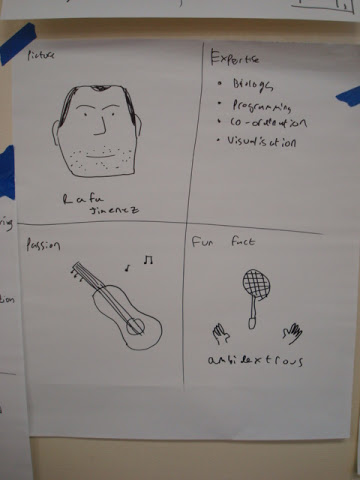 Picture
Rafa
Jimenez
Expertise
• Biology
• Programming
• Co-ordination
• Visualisation
Passion
Fun fact
ambidextrous
ring
tion